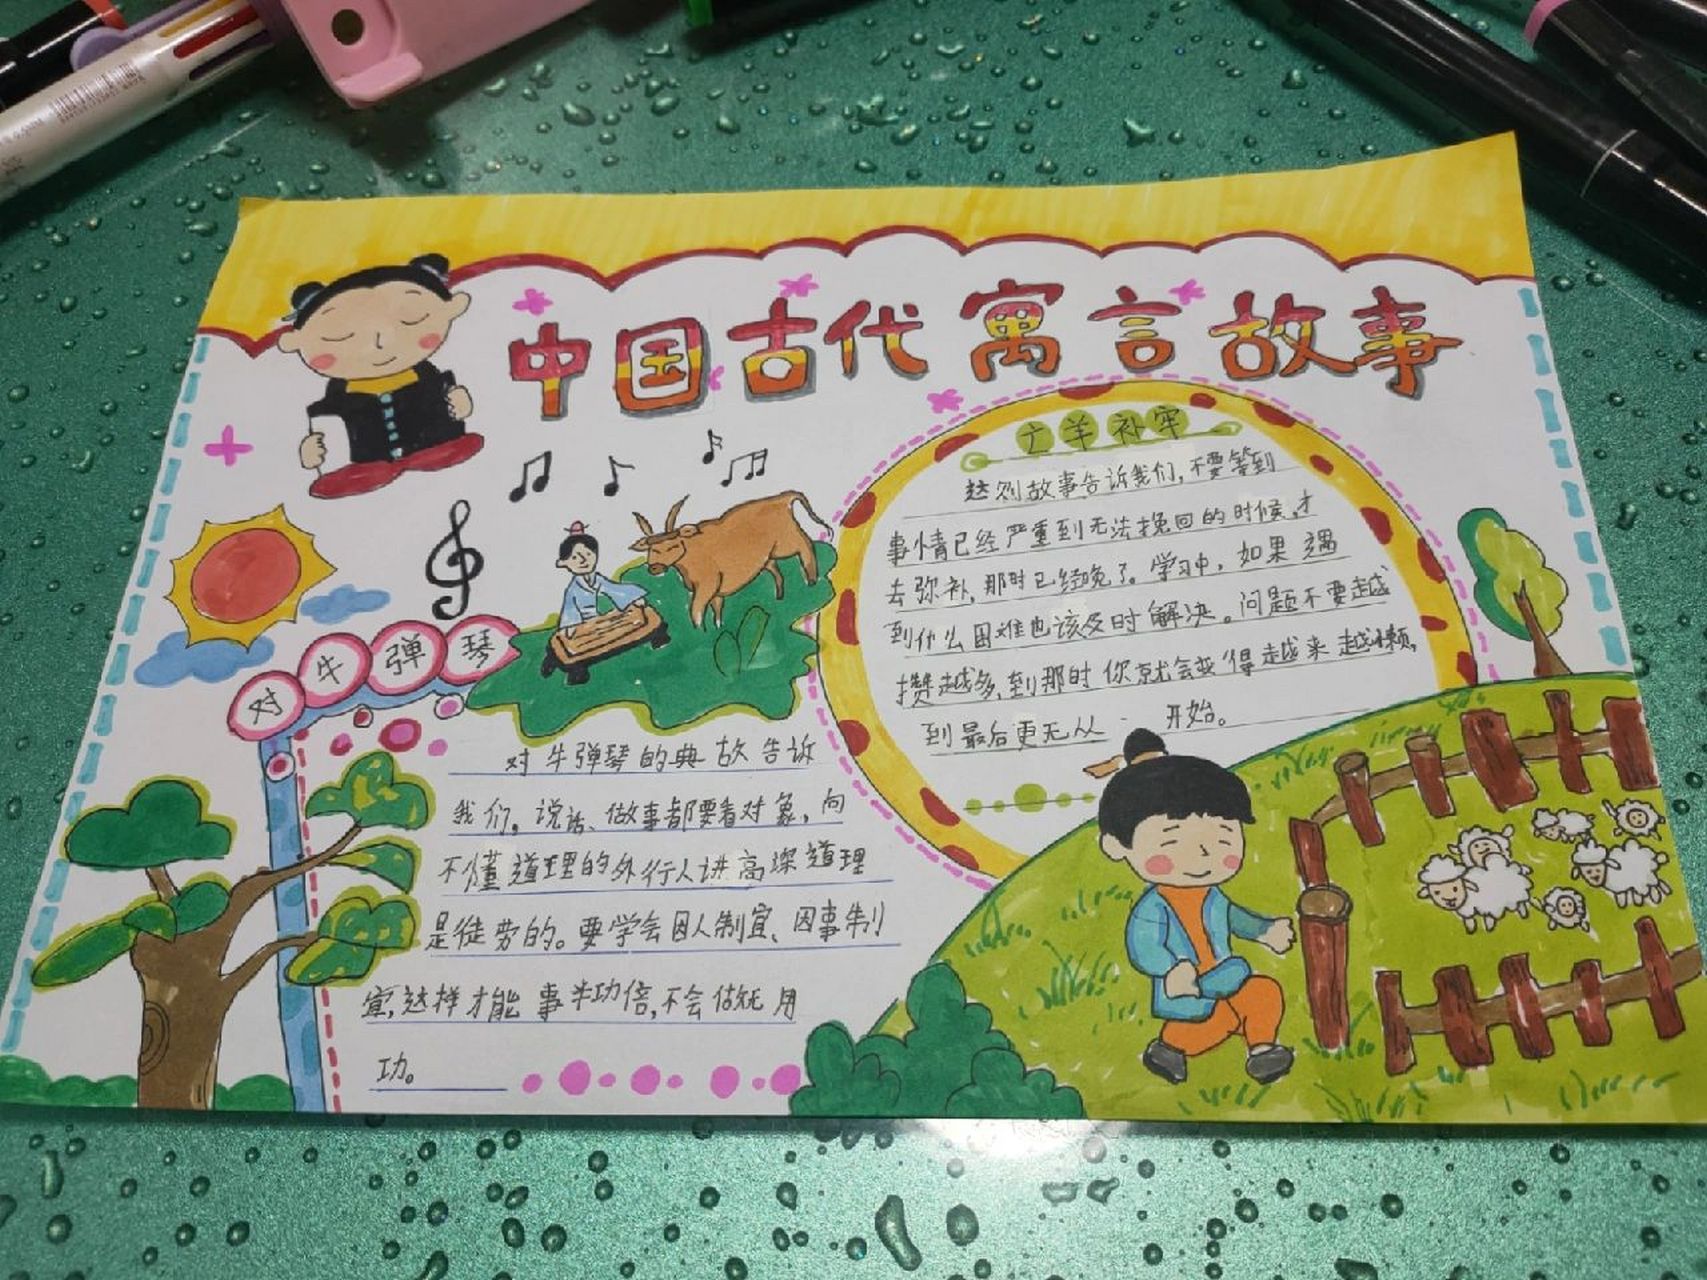 中国古代寓言故事
亡羊补牢
这则故事告诉我们,不要等到
事情已经严重到无法挽回的时候,才
去弥补,那时已经晚了。学习中,如果遇
到什么困难也该及时解决。问题不要越
攒越多,到那时你就会变得越来越懒,
到最后更无从 开始。
对牛弹琴
对牛弹琴的典故告诉
我们,说话、做事都要看对象,向
不懂道理的外行人讲高深道理
是徒劳的。要学会因人制宜、因事制
宜,这样才能事半功倍,不会做无用
功。